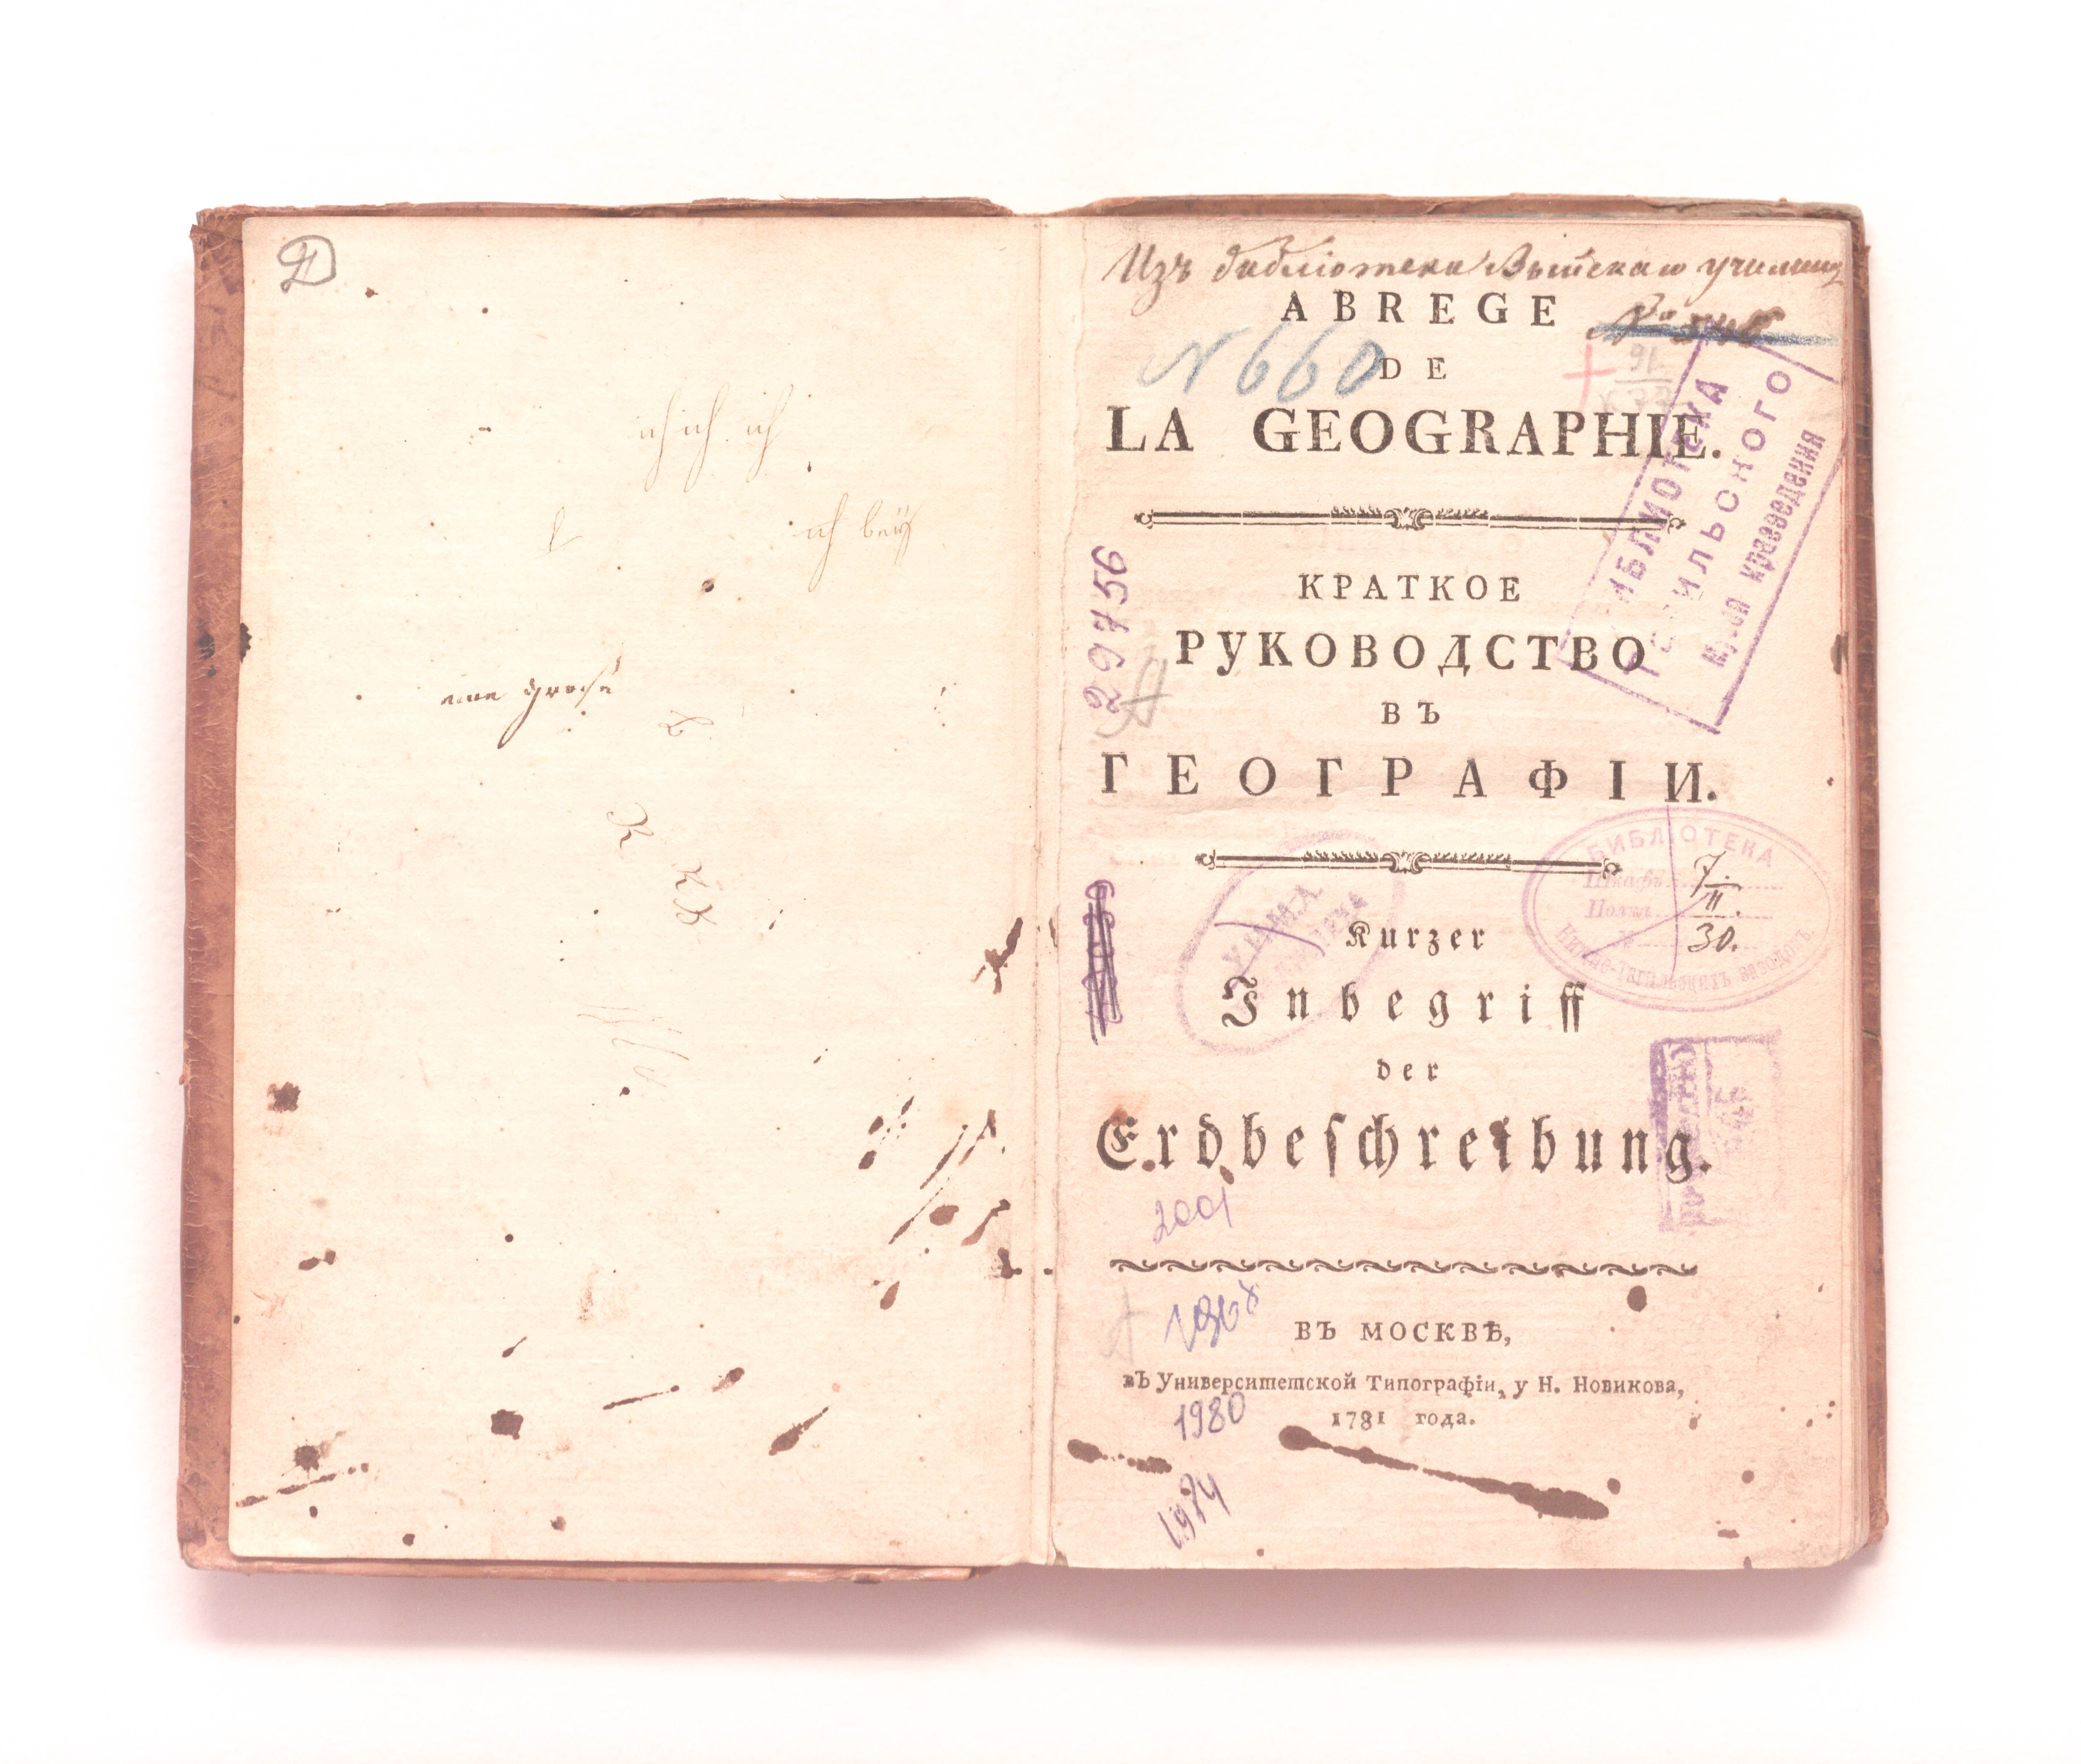 ich ich ich
ich bey
eine grosse
Изъ библіотеки Выйскаго училищ
ABREGE
N 660
DE
LA GEOGRAPHIE.
БИБЛИОТЕКА
Тагильского
музея краеведения
29756
КРАТКОЕ
РУКОВОДСТВО
ВЪ
ГЕОГРАФІИ.
БИБЛІОТЕКА
Шкафъ 7.
Полка II.
30.
Нижне-Тагильскихъ заводовъ
Kurzer
Inbegriff
der
Erdbeſchreibung.
2001
ВЪ МОСКВѢ,
вЪ Университетской Типографіи, у Н. Новикова,
1781 года.
1980
1974